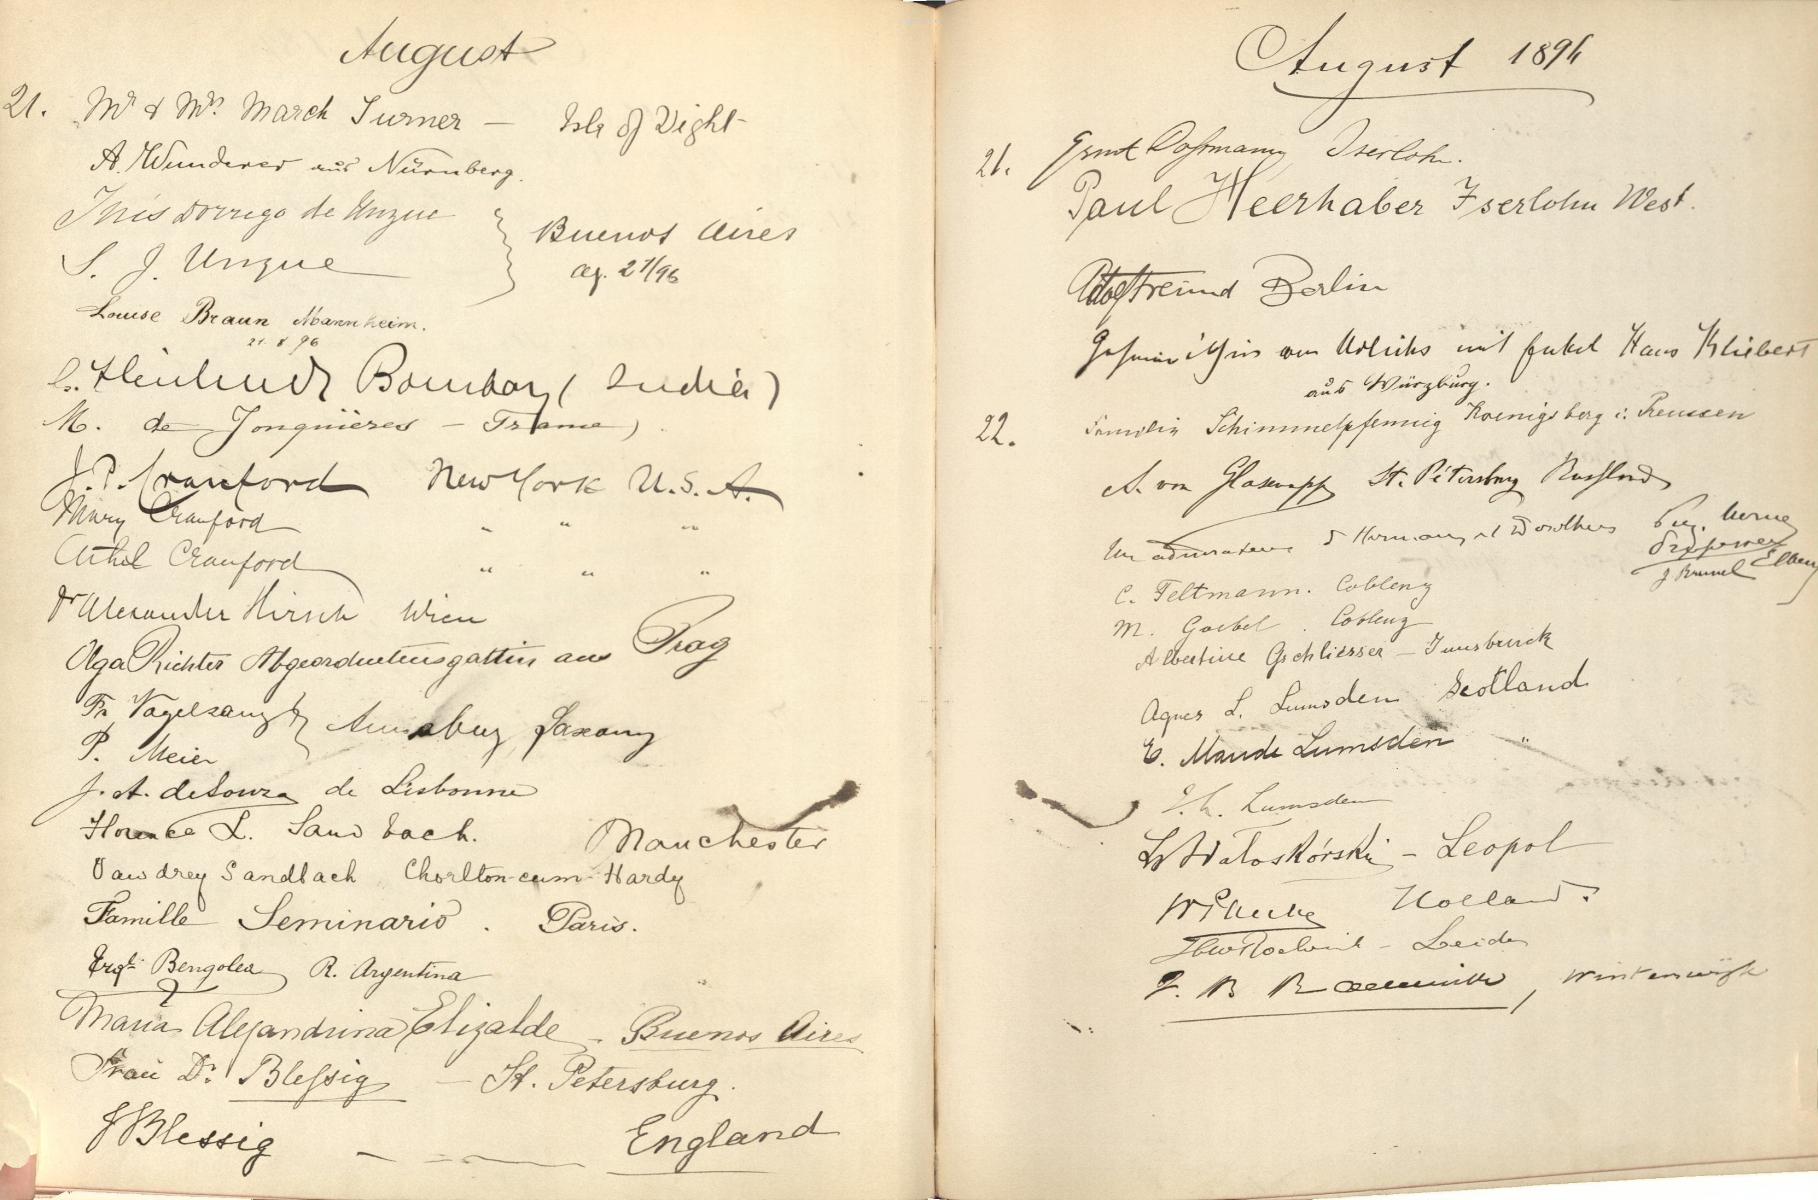 August
21. Mr & Mrs. March Turner — Isle of Wight
A. Wunderer aus Nürnberg.
Inés Dorrego de Unzue
S. J. Unzue
Buenos Aires
Ag. 21/96
Louise Braun Mannheim.
21. 8 96
Bombay (India)
M. de Jonquières — France
J. P. Cranford New York U.S.A.
Mary Cranford " " "
Ethel Cranford " " "
Dr Alexander Hirsch Wien
Olga Richter Abgeordnetensgattin aus Prag
Fr. Vogelsang
P. Meier
Saxony
J. A. de Souza de Lisbonne
Florence L. Sandbach. Manchester
Vawdrey Sandbach Chorlton-cum-Hardy
Famille Seminario. Paris.
Bengolea R. Argentina
Maria Alejandrina Elizalde — Buenos Aires
Frau Dr. Bleſsig — St. Petersburg.
J Blessig — England
August 1896
21. Ernst Iserlohn.
Paul Heerhaber Iserlohn West.
Adolf Freund Berlin
von Urlichs mit Enkel Hans Kliebert
aus Würzburg.
22. Familie Schimmelpfennig Koenigsberg i. Preussen
A. von Glasenapp St. Pétersburg Russland
Un admirateur d'Hermann et Dorothea
C. Feltmann. Coblenz
M. Goebel. Coblenz
Albertine Gschliesser — Innsbruck
Agnes L. Lumsden Scotland
E. Maude Lumsden "
Lumsden
— Leopol
Holland.
— Leiden
Winterswijk